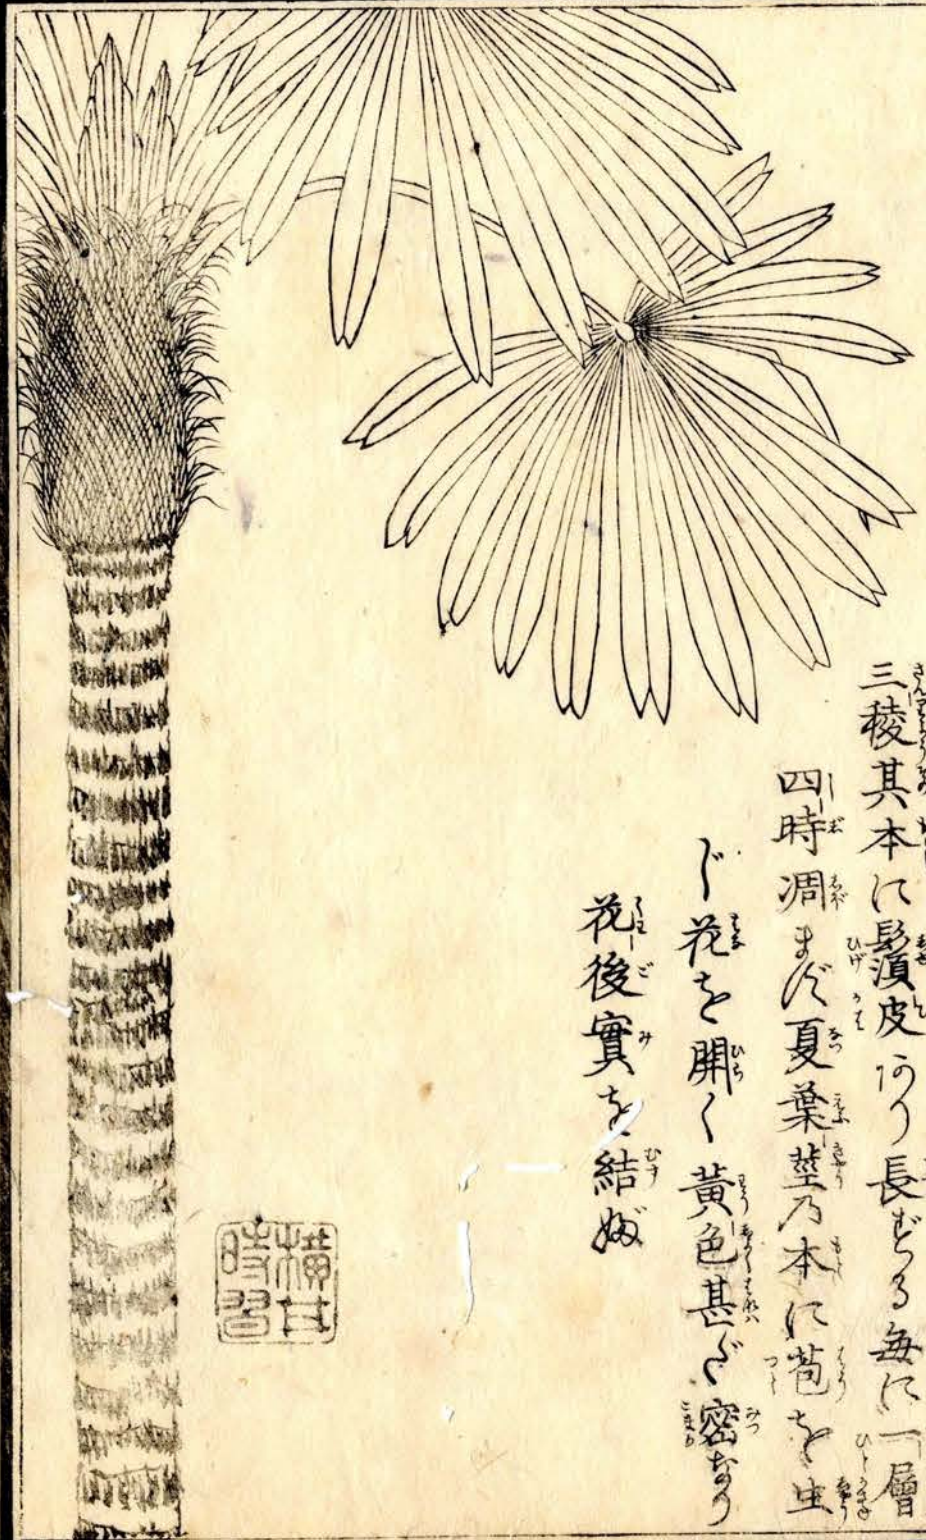 三稜其本に鬚皮あり長ずる毎に一層
四時凋まず夏葉莖乃本に苞を生
じ花を開く黄色甚だ密なり
花後實を結ぶ
横井
時習